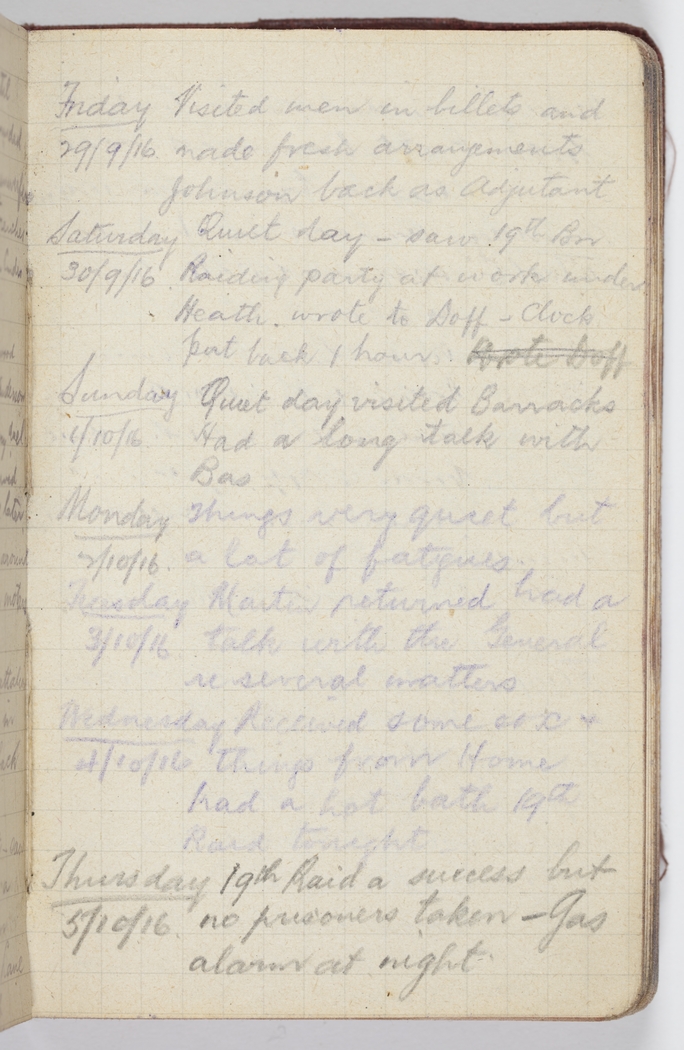 Friday Visited men in billets and
29/9/16 made fresh arrangements
Johnson back as Adjutant
Saturday Quiet day - saw 19th Bn
30/9/16 Raiding party at work under
Heath. wrote to Doff - Clock
put back 1 hour. Wrote Doff
Sunday Quiet day visited Barracks
1/10/16 Had a long talk with
Bas
Monday Things very quiet but
2/10/16. a lot of fatigues.
Tuesday Martin returned had a
3/10/16 talk with the General
re several matters
Wednesday Received some sox +
4/10/16 things from Home
had a hot bath 19th
Raid tonight
Thursday 19th Raid a success but
5/10/16 no prisoners taken - Gas
alarm at night.